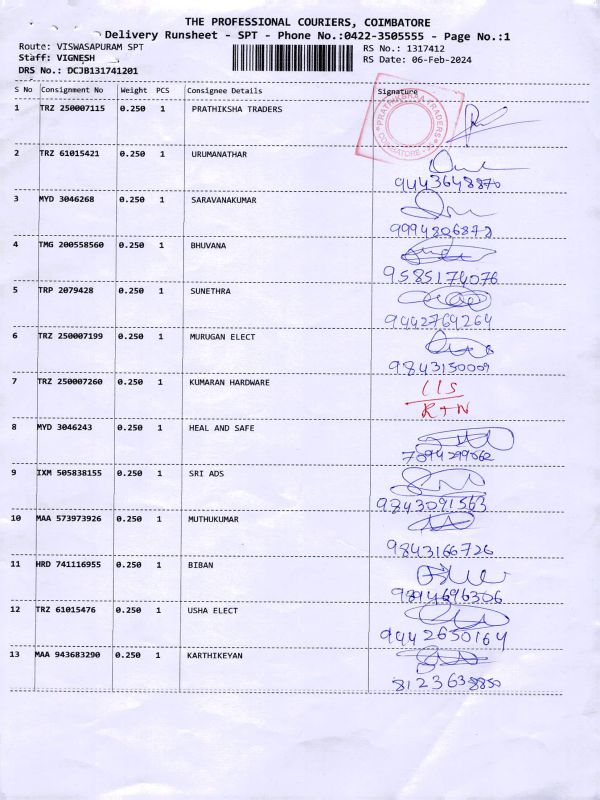 THE PROFESSIONAL COURIERS, COIMBATORE
Delivery Runsheet - SPT - Phone No.:0422-3505555 - Page No.:1
Route: VISWASAPURAM SPT RS No.: 1317412
Staff: VIGNESH RS Date: 06-Feb-2024
DRS No.: DCJB131741201
S No Consignment No Weight PCS Consignee Details Signature
1 TRZ 250007115 0.250 1 PRATHIKSHA TRADERS
PRATHIKSHA TRADERS COIMBATORE
2 TRZ 61015421 0.250 1 URUMANATHAR
9443648870
3 MYD 3046268 0.250 1 SARAVANAKUMAR
9994806878
4 TMG 200558560 0.250 1 BHUVANA
9585174076
5 TRP 2079428 0.250 1 SUNETHRA
9442764264
6 TRZ 250007199 0.250 1 MURUGAN ELECT
9843150009
7 TRZ 250007260 0.250 1 KUMARAN HARDWARE
RTN
8 MYD 3046243 0.250 1 HEAL AND SAFE
7094299062
9 IXM 505838155 0.250 1 SRI ADS
9843091563
10 MAA 573973926 0.250 1 MUTHUKUMAR
9843166726
11 HRD 741116955 0.250 1 BIBAN
9894696306
12 TRZ 61015476 0.250 1 USHA ELECT
9442650164
13 MAA 943683290 0.250 1 KARTHIKEYAN
8123638850